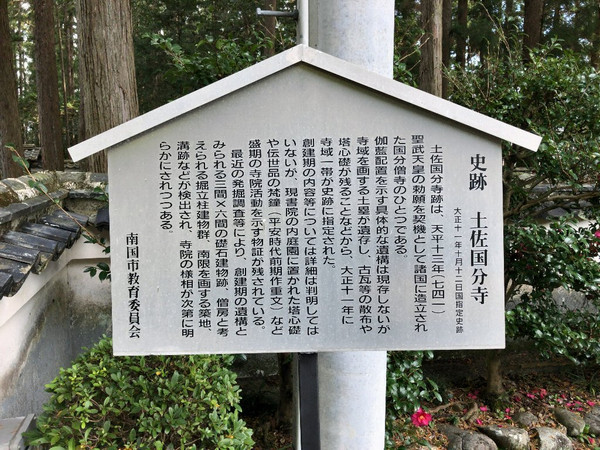 史跡　土佐国分寺
大正十一年十月十二日国指定史跡
土佐国分寺跡は、天平十三年（七四一）
聖武天皇の勅願を契機として諸国に造立され
た国分僧寺のひとつである。
伽藍配置を示す具体的な遺構は現存しないが
寺域を画する土塁が遺存し、古瓦等の散布や
塔心礎が残ることなどから、大正十一年に
寺域一帯が史跡に指定された。
創建期の内容等については詳細は判明しては
いないが、現書院の内庭園に置かれた塔心礎
や伝世品の梵鐘（平安時代前期作重文）など
盛期の寺院活動を示す物証が残されている。
最近の発掘調査等により、創建期の遺構と
みられる三間×六間の礎石建物跡、僧房と考
えられる掘立柱建物群、南限を画する築地、
溝跡などが検出され、寺院の様相が次第に明
らかにされつつある。
南国市教育委員会